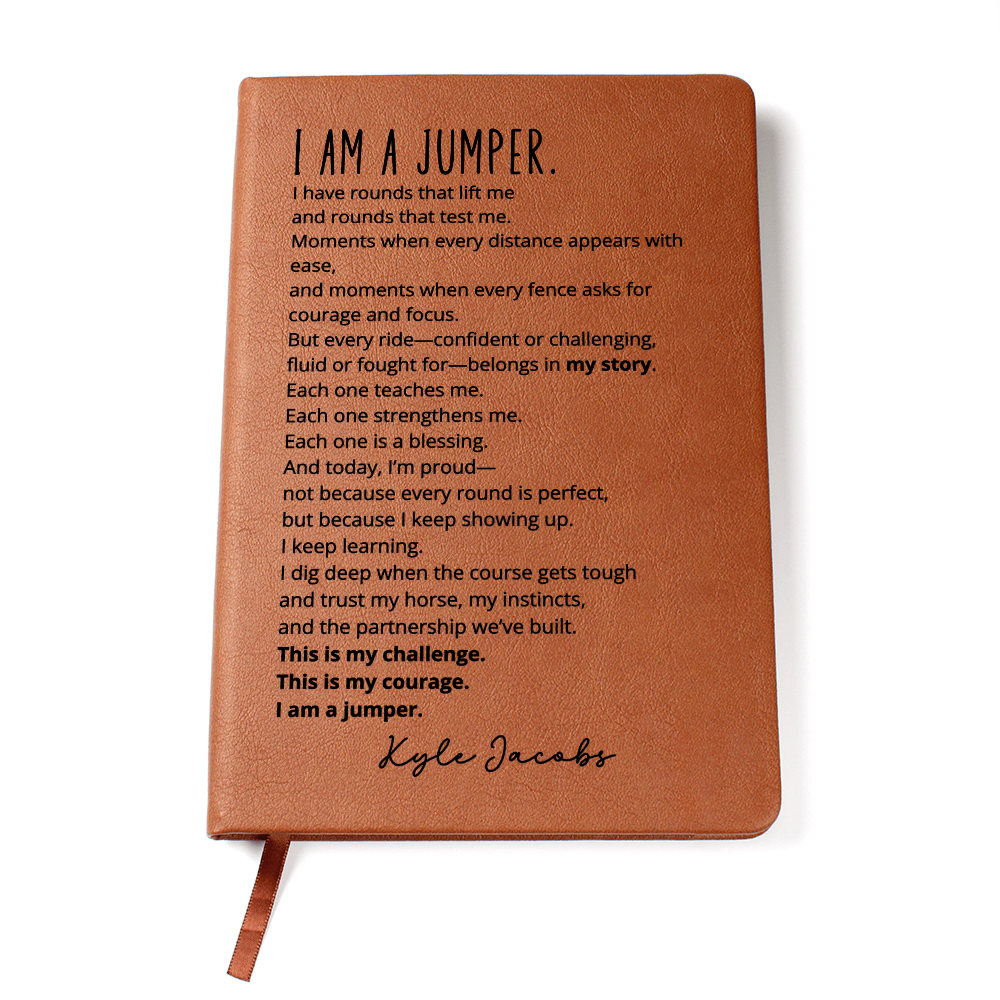 I AM A JUMPER.
I have rounds that lift me
and rounds that test me.
Moments when every distance appears with
ease,
and moments when every fence asks for
courage and focus.
But every ride—confident or challenging,
fluid or fought for—belongs in my story.
Each one teaches me.
Each one strengthens me.
Each one is a blessing.
And today, I’m proud—
not because every round is perfect,
but because I keep showing up.
I keep learning.
I dig deep when the course gets tough
and trust my horse, my instincts,
and the partnership we’ve built.
This is my challenge.
This is my courage.
I am a jumper.
Kyle Jacobs